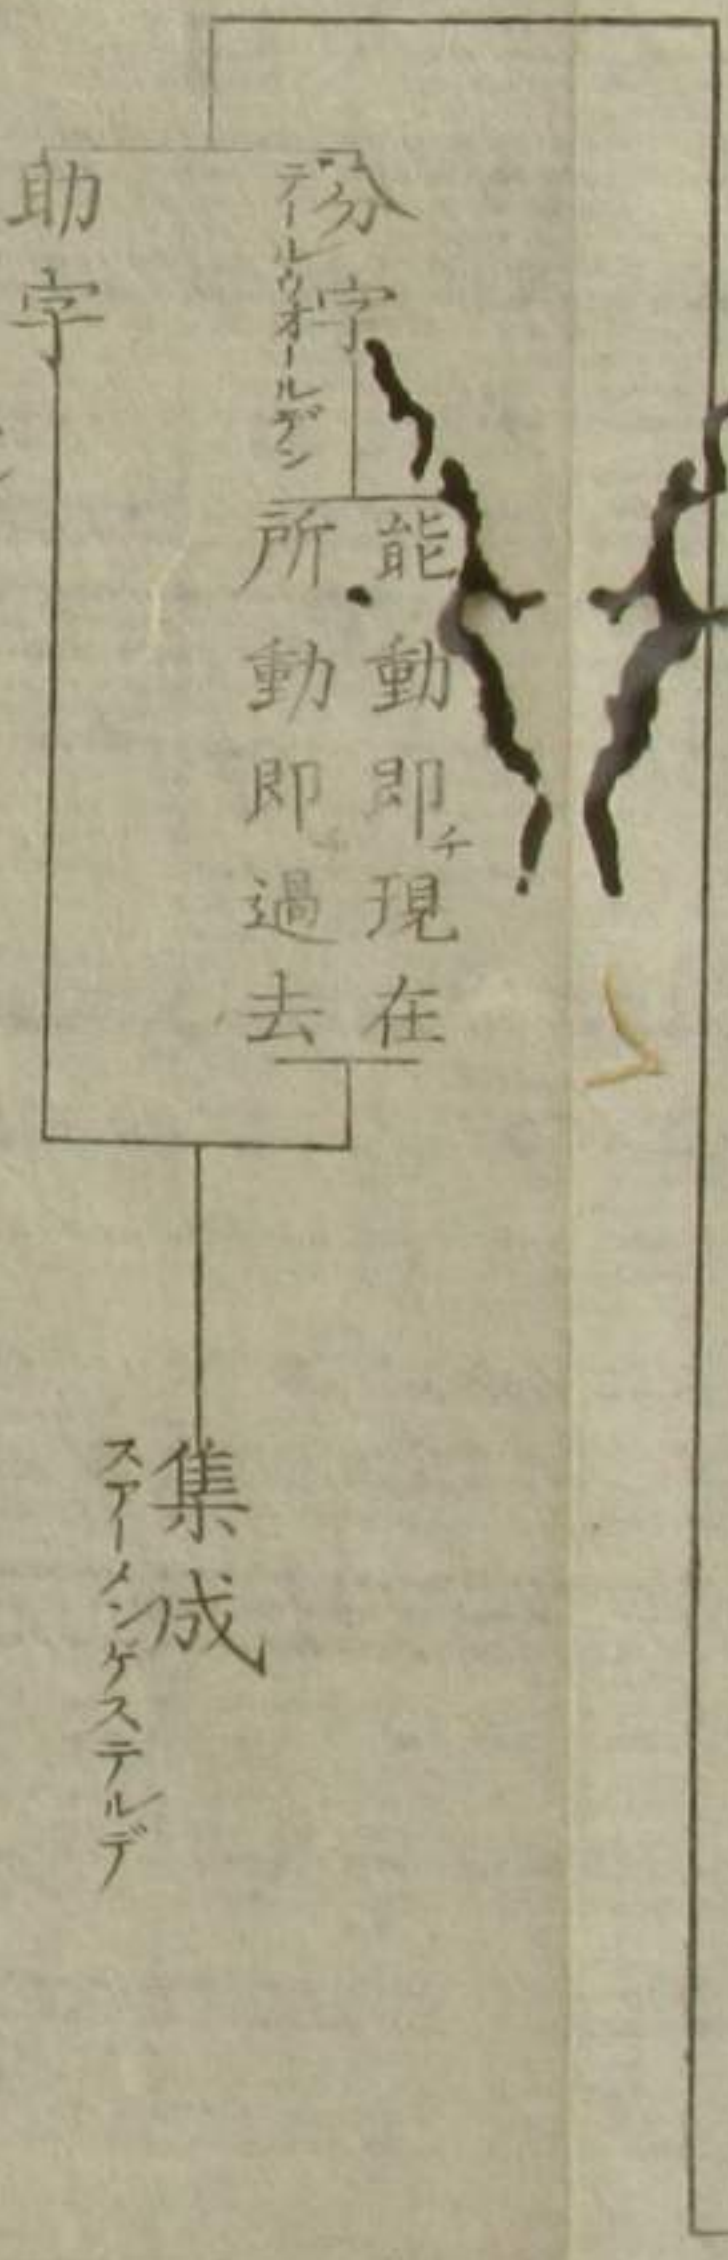 分字
デールウオールデン
能動即チ現在
所動即チ過去
助字
集成
スアーメンゲステルデ